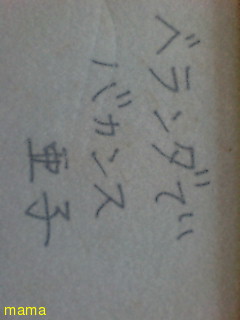 ベランダで
バカンス
亜子
mama